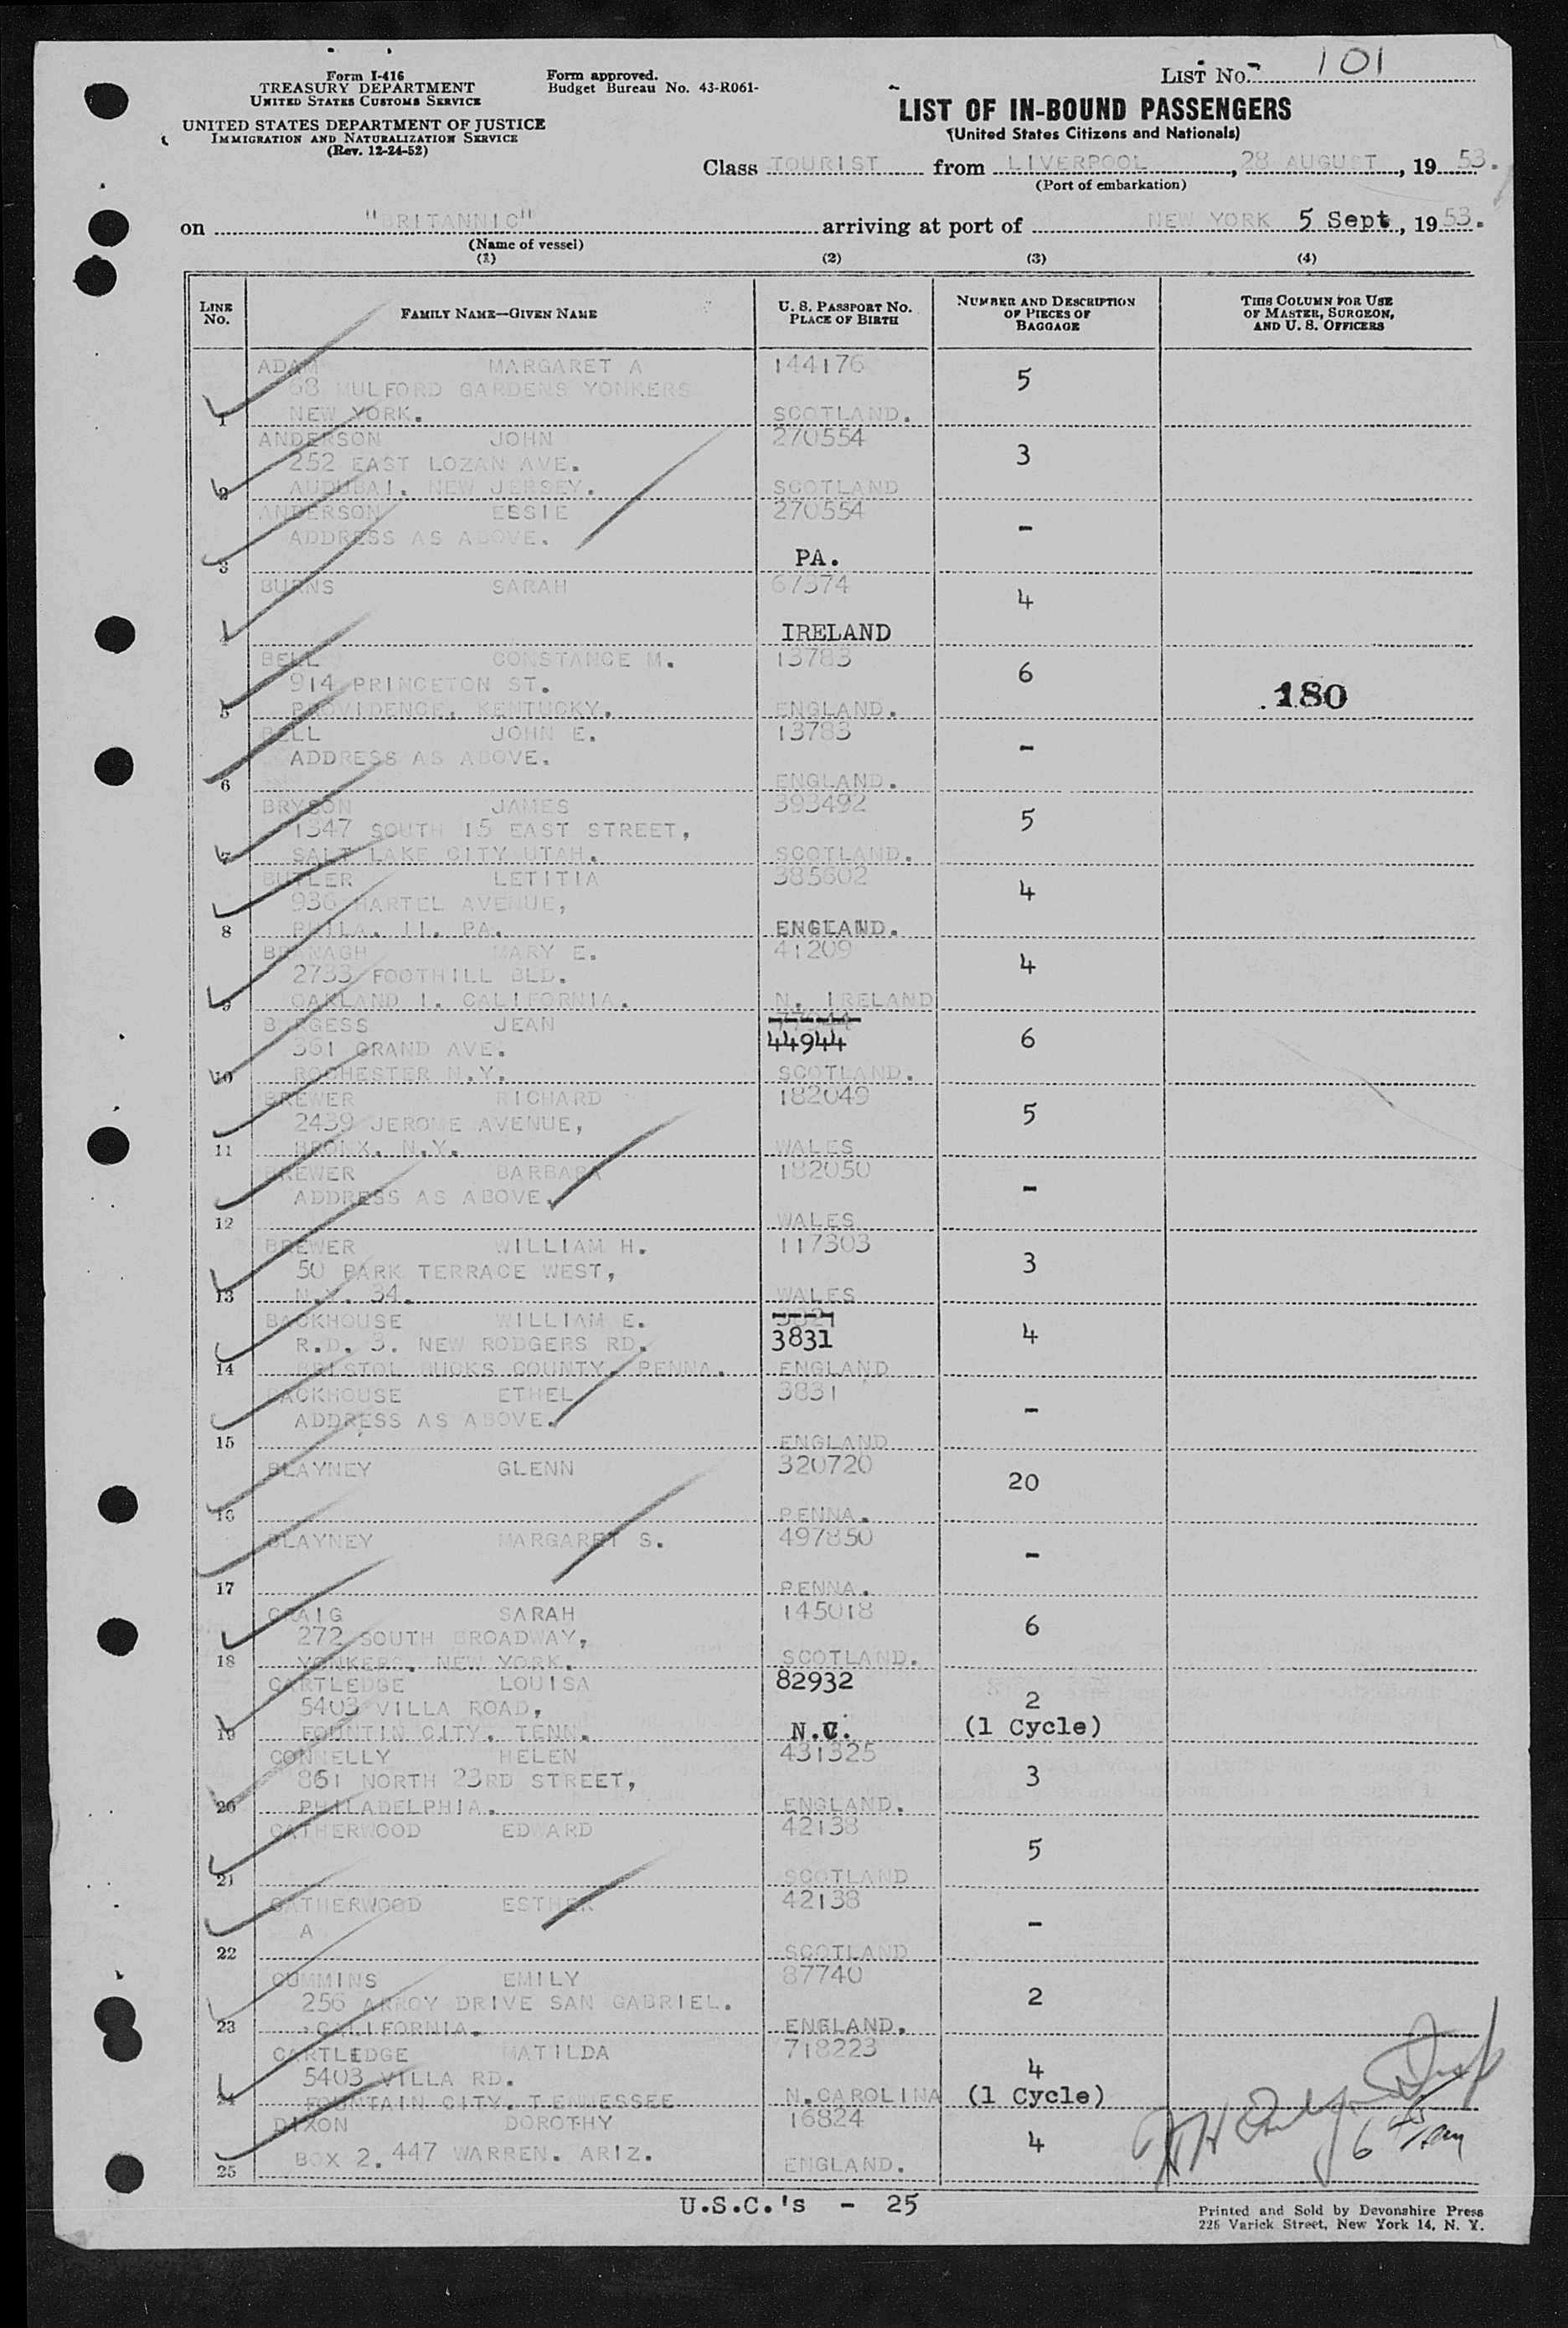 Form I-416
TREASURY DEPARTMENT
UNITED STATES CUSTOMS SERVICE
UNITED STATES DEPARTMENT OF JUSTICE
IMMIGRATION AND NATURALIZATION SERVICE
(Rev. 12-24-52)
Form approved.
Budget Bureau No. 43-R061-
LIST No. 101
LIST OF IN-BOUND PASSENGERS
(United States Citizens and Nationals)
Class TOURIST from LIVERPOOL, 28 AUGUST, 1953.
(Port of embarkation)
on "BRITANNIC" arriving at port of NEW YORK 5 Sept, 1953.
(Name of vessel)
(1) (2) (3) (4)
LINE No. FAMILY NAME—GIVEN NAME U. S. PASSPORT No. PLACE OF BIRTH NUMBER AND DESCRIPTION OF PIECES OF BAGGAGE THIS COLUMN FOR USE OF MASTER, SURGEON, AND U. S. OFFICERS
ADAM MARGARET A 144176
68 MULFORD GARDENS YONKERS 5
1 NEW YORK. SCOTLAND.
ANDERSON JOHN 270554
252 EAST LOZAN AVE. 3
2 AUDUBAI. NEW JERSEY. SCOTLAND
ANDERSON ESSIE 270554
ADDRESS AS ABOVE. -
3 PA.
BURNS SARAH 67374
4
4 IRELAND
BELL CONSTANCE M. 13783
914 PRINCETON ST. 6
5 PROVIDENCE, KENTUCKY. ENGLAND. 180
BELL JOHN E. 13783
ADDRESS AS ABOVE. -
6 ENGLAND.
BRYSON JAMES 393492
1347 SOUTH 15 EAST STREET, 5
7 SALT LAKE CITY UTAH. SCOTLAND.
BUTLER LETITIA 385602
936 MARTEL AVENUE, 4
8 PHILA. 11. PA. ENGLAND.
BRANAGH MARY E. 41209
2733 FOOTHILL BLD. 4
9 OAKLAND 1. CALIFORNIA. N. IRELAND
BURGESS JEAN
361 GRAND AVE. 44944 6
10 ROCHESTER N.Y. SCOTLAND.
BREWER RICHARD 182049
2439 JEROME AVENUE, 5
11 BRONX. N.Y. WALES
BREWER BARBARA 182050
ADDRESS AS ABOVE. -
12 WALES
BREWER WILLIAM H. 117303
50 PARK TERRACE WEST, 3
13 N.Y. 34. WALES
BACKHOUSE WILLIAM E.
R.D. 3. NEW RODGERS RD. 3831 4
14 BRISTOL BUCKS COUNTY, PENNA. ENGLAND
BACKHOUSE ETHEL 3831
ADDRESS AS ABOVE. -
15 ENGLAND
BLAYNEY GLENN 320720
20
16 PENNA.
BLAYNEY MARGARET S. 497850
-
17 PENNA.
CRAIG SARAH 145018
272 SOUTH BROADWAY, 6
18 YONKERS. NEW YORK. SCOTLAND.
CARTLEDGE LOUISA 82932
5403 VILLA ROAD, 2
19 FOUNTIN CITY. TENN. N.C. (1 Cycle)
CONNELLY HELEN 431325
861 NORTH 23RD STREET, 3
20 PHILADELPHIA. ENGLAND.
CATHERWOOD EDWARD 42138
5
21 SCOTLAND
CATHERWOOD ESTHER 42138
A -
22 SCOTLAND
CUMMINS EMILY 87740
256 ARROY DRIVE SAN GABRIEL. 2
23 CALIFORNIA. ENGLAND.
CARTLEDGE MATILDA 718223
5403 VILLA RD. 4
24 FOUNTAIN CITY. TENNESSEE N.CAROLINA (1 Cycle)
DIXON DOROTHY 16824
BOX 2. 447 WARREN. ARIZ. 4
25 ENGLAND.
U.S.C.'s - 25
Printed and Sold by Devonshire Press
225 Varick Street, New York 14, N. Y.